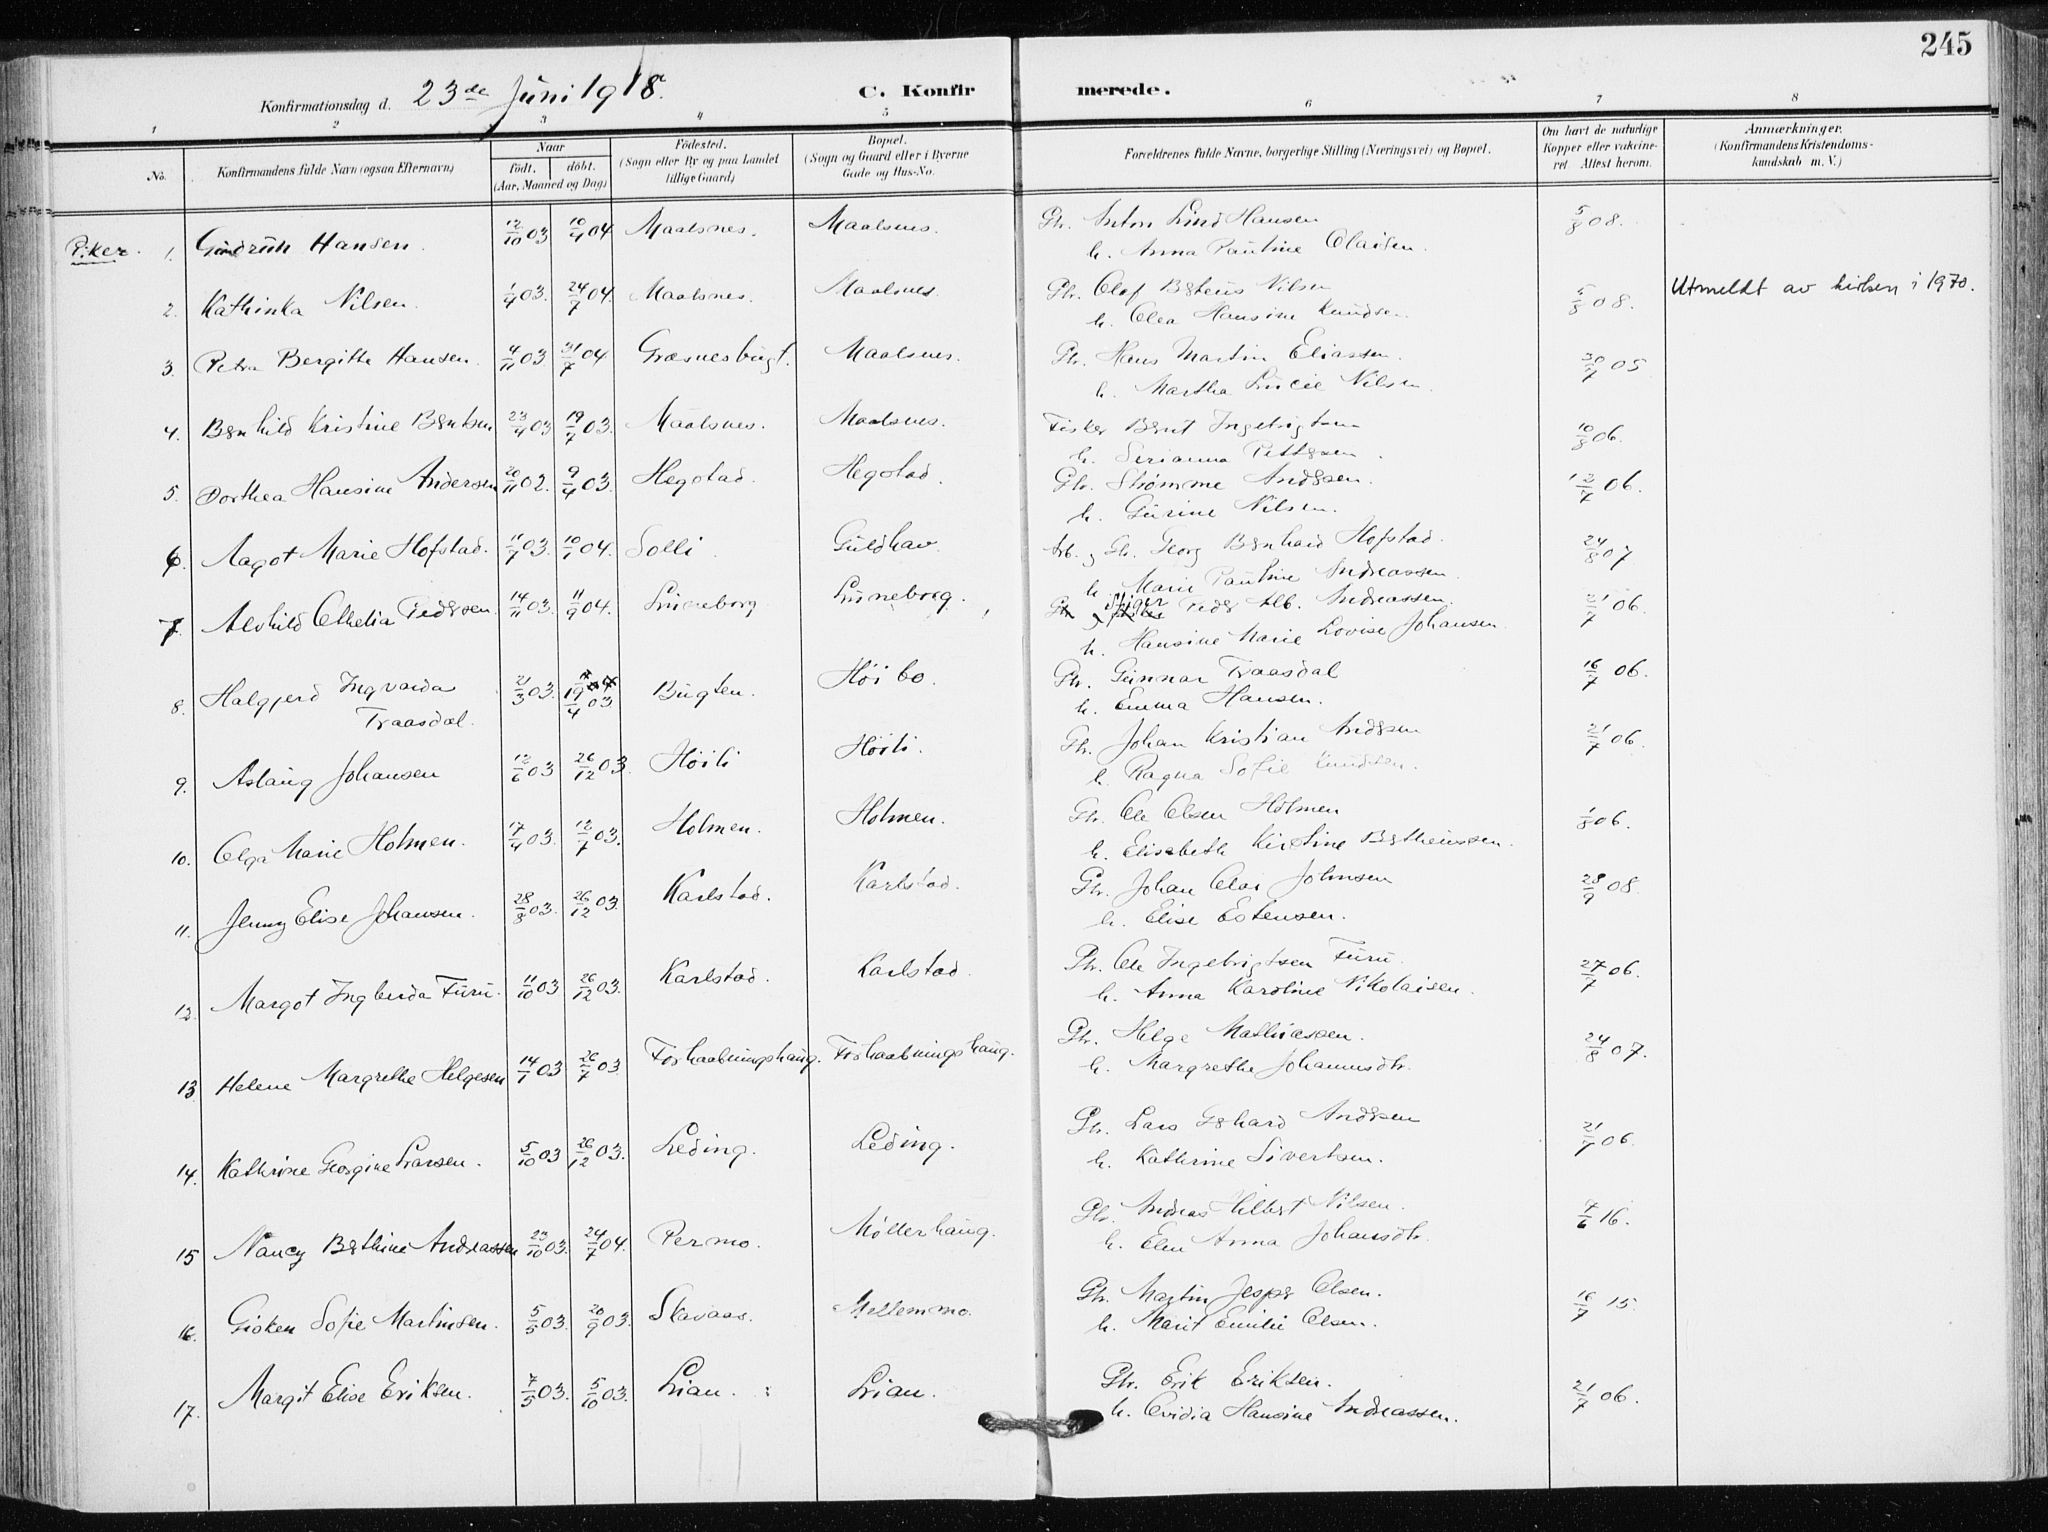 245
Konfirmationsdag d. 23de Juni 1918. C. Konfirmerede.
1 2 3 4 5 6 7 8
No. Konfirmandens fulde Navn (ogsaa Efternavn) Naar født, døbt. (Aar, Maaned og Dag) Fødested. (Sogn eller By og paa Landet tillige Gaard) Bopæl. (Sogn og Gaard eller i Byerne Gade og Hus-No. Forældrenes fulde Navne, borgerlige Stilling (Næringsvei) og Bopæl. Om havt de naturlige Kopper eller vakcineret. Attest herom. Anmærkninger. (Konfirmandens Kristendomskundskab m. V.)
Piker. 1. Gudrun Hansen. 12/10 03 10/4 04 Maalsnes. Maalsnes. Gbr. Anton Lind Hansen 5/8 08.
h. Anna Pauline Olaisen.
2. Kathinka Nilsen. 1/4 03. 24/7 04. Maalsnes. Maalsnes. Gbr. Olaf Berteus Nilsen 5/8 08. Utmeldt av kirken i 1970.
h. Olea Hansine Knudsen
3. Petra Bergithe Hansen. 4/11 03 31/7 04 Græsnesbugt. Maalsnes. Gbr. Hans Martin Eliassen. 30/7 05
h. Martha Lucie Nilsen.
4. Bernhild Kristine Berntsen 23/4 03 19/7 03. Maalsnes. Maalsnes. Fisker Bernt Ingebrigtsen 10/8 06.
h. Serianna Pettersen.
5. Dorthea Hansine Andersen 20/11 02. 9/4 03. Hegstad. Hegstad. Gbr. Strømme Andersen. 12/7 06.
h. Gurine Nilsen.
6. Aagot Marie Hofstad. 11/7 03. 10/1 04. Solli. Guldhav Arb. og Gbr. Georg Bernhard Hofstad. 24/8 07
h. Marie Pauline Andreassen.
7. Alvhild Othelia Pedersen. 14/11 03. 11/9 04. Luneborg Luneborg. Stiger Peder Alb. Andreassen. 21/7 06.
h. Hansine Marie Lovise Johansen.
8. Halgjerd Ingvarda 21/3 03. 19/4 03 Bugten. Høibo. Gbr. Gunnar Traasdal 16/7 06.
Traasdal. h. Emma Hansen.
9. Aslaug Johansen 12/6 03 26/12 03. Høili Høili Gbr. Johan Kristian Andersen 21/7 06.
h. Ragna Sofie Knudsen.
10. Olga Marie Holmen. 17/4 03. 12/7 03. Holmen. Holmen. Gbr. Ole Olsen Holmen 1/8 06.
h. Elisabeth Kirstine Bertheussen.
11. Jenny Elise Johansen. 28/8 03. 26/12 03. Karlstad. Karlstad. Gbr. Johan Olai Johnsen 28/9 08.
h. Elise Estensen.
12. Margot Ingberda Furu. 11/10 03 26/12 03. Karlstad. Karlstad. Gbr. Ole Ingebrigtsen Furu. 27/7 06.
h. Anna Karoline Nikolaisen.
13. Helene Margrethe Helgesen 14/1 03 26/7 03 Forhaabningshaug. Forhaabningshaug. Gbr. Helge Mathiassen. 24/8 07.
h. Margrethe Johannesdtr.
14. Kathrine Georgine Larsen. 5/10 03 26/12 03. Leding. Leding. Gbr. Lars Gerhard Andersen 21/7 06.
h. Kathrine Sivertsen.
15 Nancy Berthine Andreassen 23/10 03. 24/7 04. Permo. Møllerhaug. Gbr. Andreas Hilbert Nilsen. 7/6 16.
h. Elen Anna Johansdtr.
16. Gisken Sofie Martinsen. 5/5 03. 20/9 03. Skavaas. Mellemmo. Gbr. Martin Jesper Olsen. 16/7 15.
h. Marit Emilie Olsen.
17. Margit Elise Eriksen. 7/5 03. 5/10 03. Lian. Lian. Gbr. Erik Eriksen. 21/7 06.
h. Ovidia Hansine Andreassen.